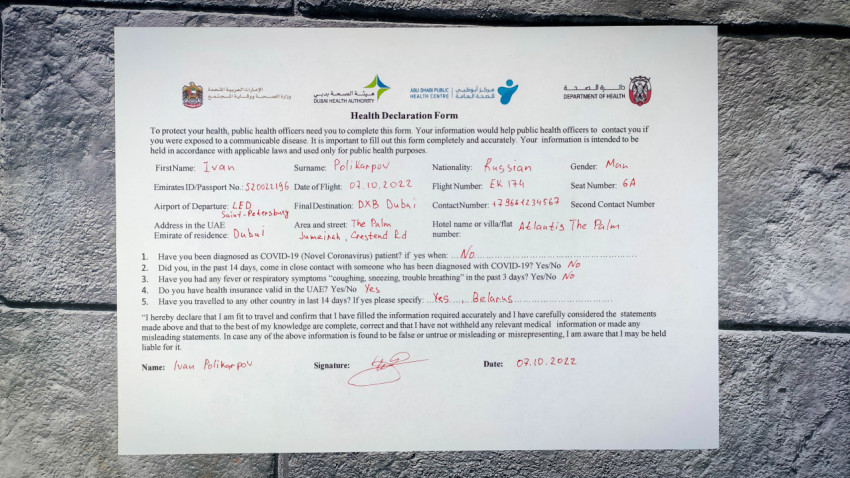 الإمارات العربية المتحدة
وزارة الصحة ووقاية المجتمع
هيئة الصحة بدبي
DUBAI HEALTH AUTHORITY
ABU DHABI PUBLIC HEALTH CENTRE
مركز أبوظبي للصحة العامة
دائرة الصحة
DEPARTMENT OF HEALTH
Health Declaration Form
To protect your health, public health officers need you to complete this form. Your information would help public health officers to contact you if
you were exposed to a communicable disease. It is important to fill out this form completely and accurately. Your information is intended to be
held in accordance with applicable laws and used only for public health purposes.
FirstName: Ivan Surname: Polikarpov Nationality: Russian Gender: Man
Emirates ID/Passport No.: 520022196 Date of Flight: 07.10.2022 Flight Number: EK 174 Seat Number: 6A
Airport of Departure: LED Saint-Petersburg Final Destination: DXB Dubai ContactNumber: +79661234567 Second Contact Number
Address in the UAE Area and street: The Palm Hotel name or villa/flat Atlantis The Palm
Emirate of residence: Dubai Jumeirah, Crestend Rd number:
1. Have you been diagnosed as COVID-19 (Novel Coronavirus) patient? if yes when: No
2. Did you, in the past 14 days, come in close contact with someone who has been diagnosed with COVID-19? Yes/No No
3. Have you had any fever or respiratory symptoms “coughing, sneezing, trouble breathing” in the past 3 days? Yes/No No
4. Do you have health insurance valid in the UAE? Yes/No Yes
5. Have you travelled to any other country in last 14 days? If yes please specify: Yes, Belarus
“I hereby declare that I am fit to travel and confirm that I have filled the information required accurately and I have carefully considered the statements
made above and that to the best of my knowledge are complete, correct and that I have not withheld any relevant medical information or made any
misleading statements. In case any of the above information is found to be false or untrue or misleading or misrepresenting, I am aware that I may be held
liable for it.
Name: Ivan Polikarpov Signature: Date: 07.10.2022